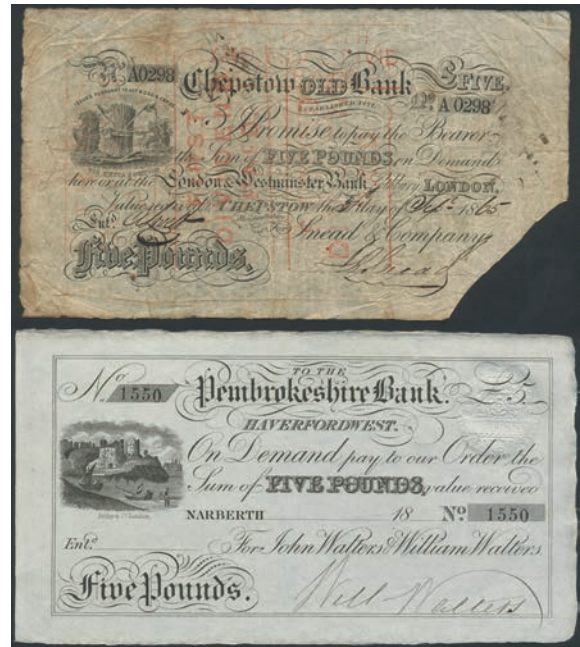 No A0298 Chepstow OLD Bank £FIVE.
ISSUED PURSUANT TO ACT
ESTABLISHED
No A 0298
I Promise to pay the Bearer
the Sum of FIVE POUNDS, on Demand
here or at the London & Westminster Bank, LONDON.
Value received CHEPSTOW the day of 1865
Entd. For Snead & Company,
Five Pounds. Snead
TO THE
No 1550 Pembrokeshire Bank. £5
HAVERFORDWEST.
On Demand pay to our Order the
Sum of FIVE POUNDS, value received
NARBERTH 18 No 1550
Entd. For John Walters & William Walters.
Five Pounds. Will Walters